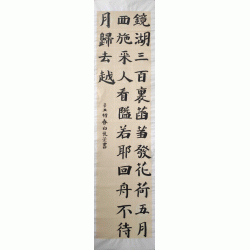 鏡湖三百裏菡萏發花荷五月
西施采人看隘若耶回舟不待
月歸去越
春白書